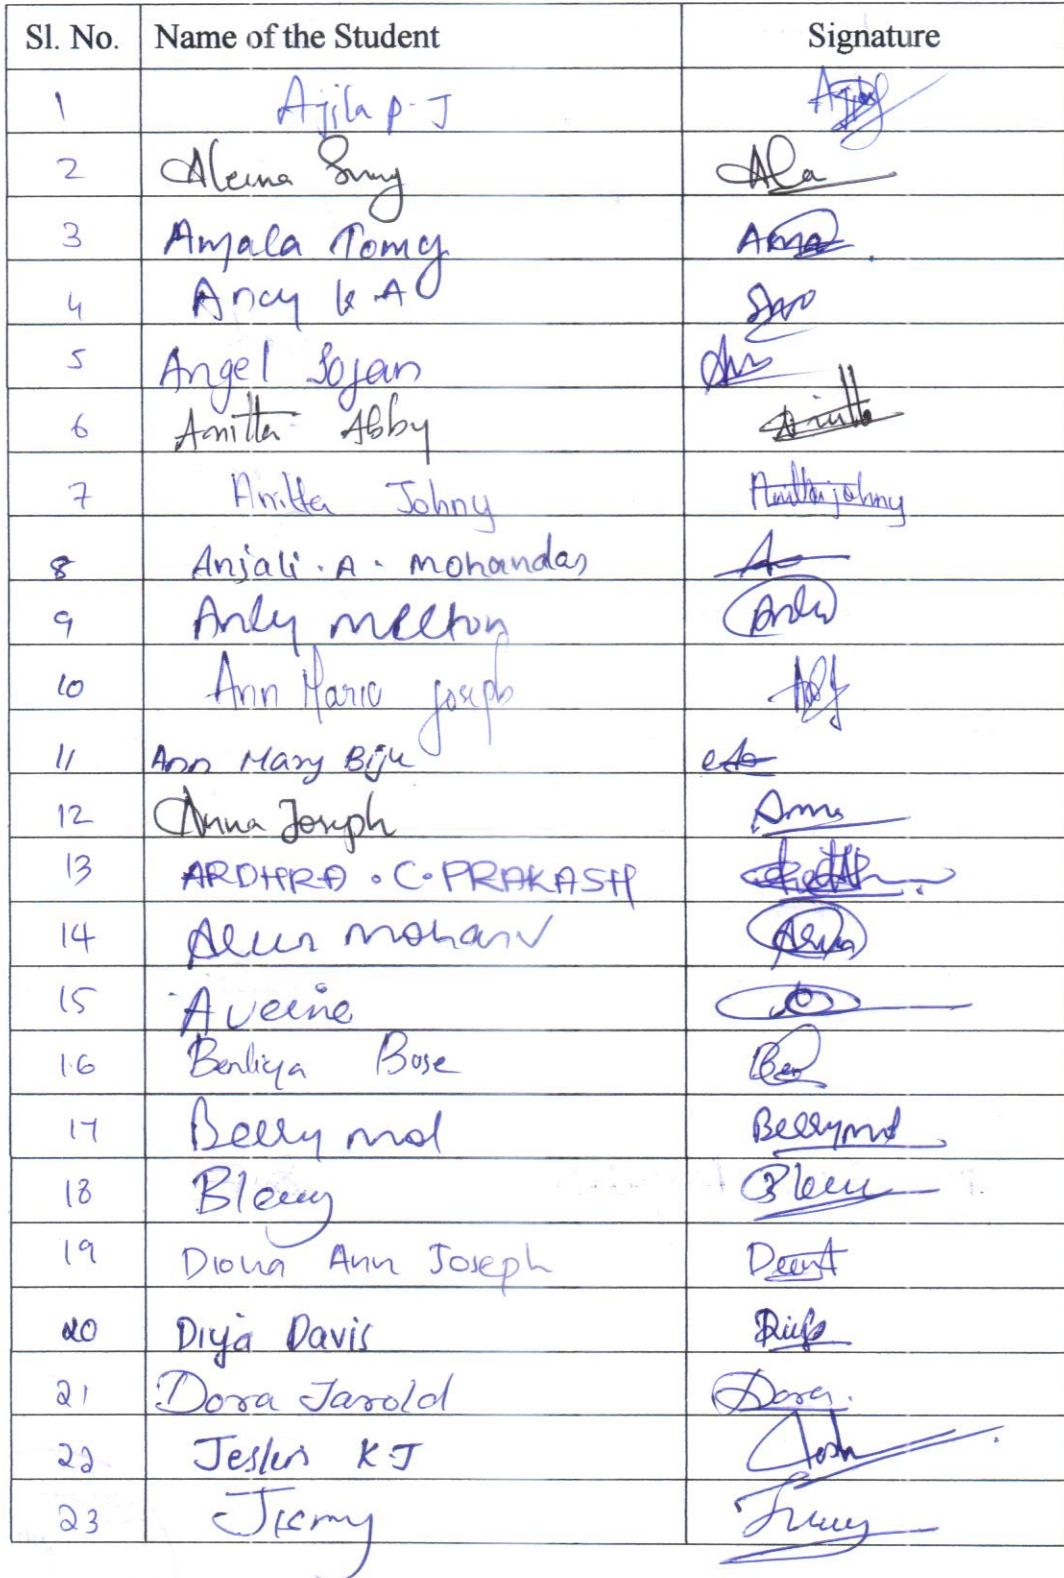 Sl. No. Name of the Student Signature
1 Ajila P. J
2 Aleena Sunny Ala
3 Amala Tomy Ama
4 Ancy K A
5 Angel Sojan
6 Anitta Abby Anitta
7 Anitta Johny Anitta johny
8 Anjali . A . Mohandas A
9 Anly Melton Anly
10 Ann Maria Joseph AMJ
11 Ann Mary Biju
12 Anna Joseph Anna
13 ARDHRA . C . PRAKASH
14 Mohan
15
16 Benliya Bose Ben
17 Bellymol Bellymol
18 Blemy
19 Diona Ann Joseph
20 Diya Davis Diya
21 Dora Jarold Dora
22 Jeslin K J
23 Jismy